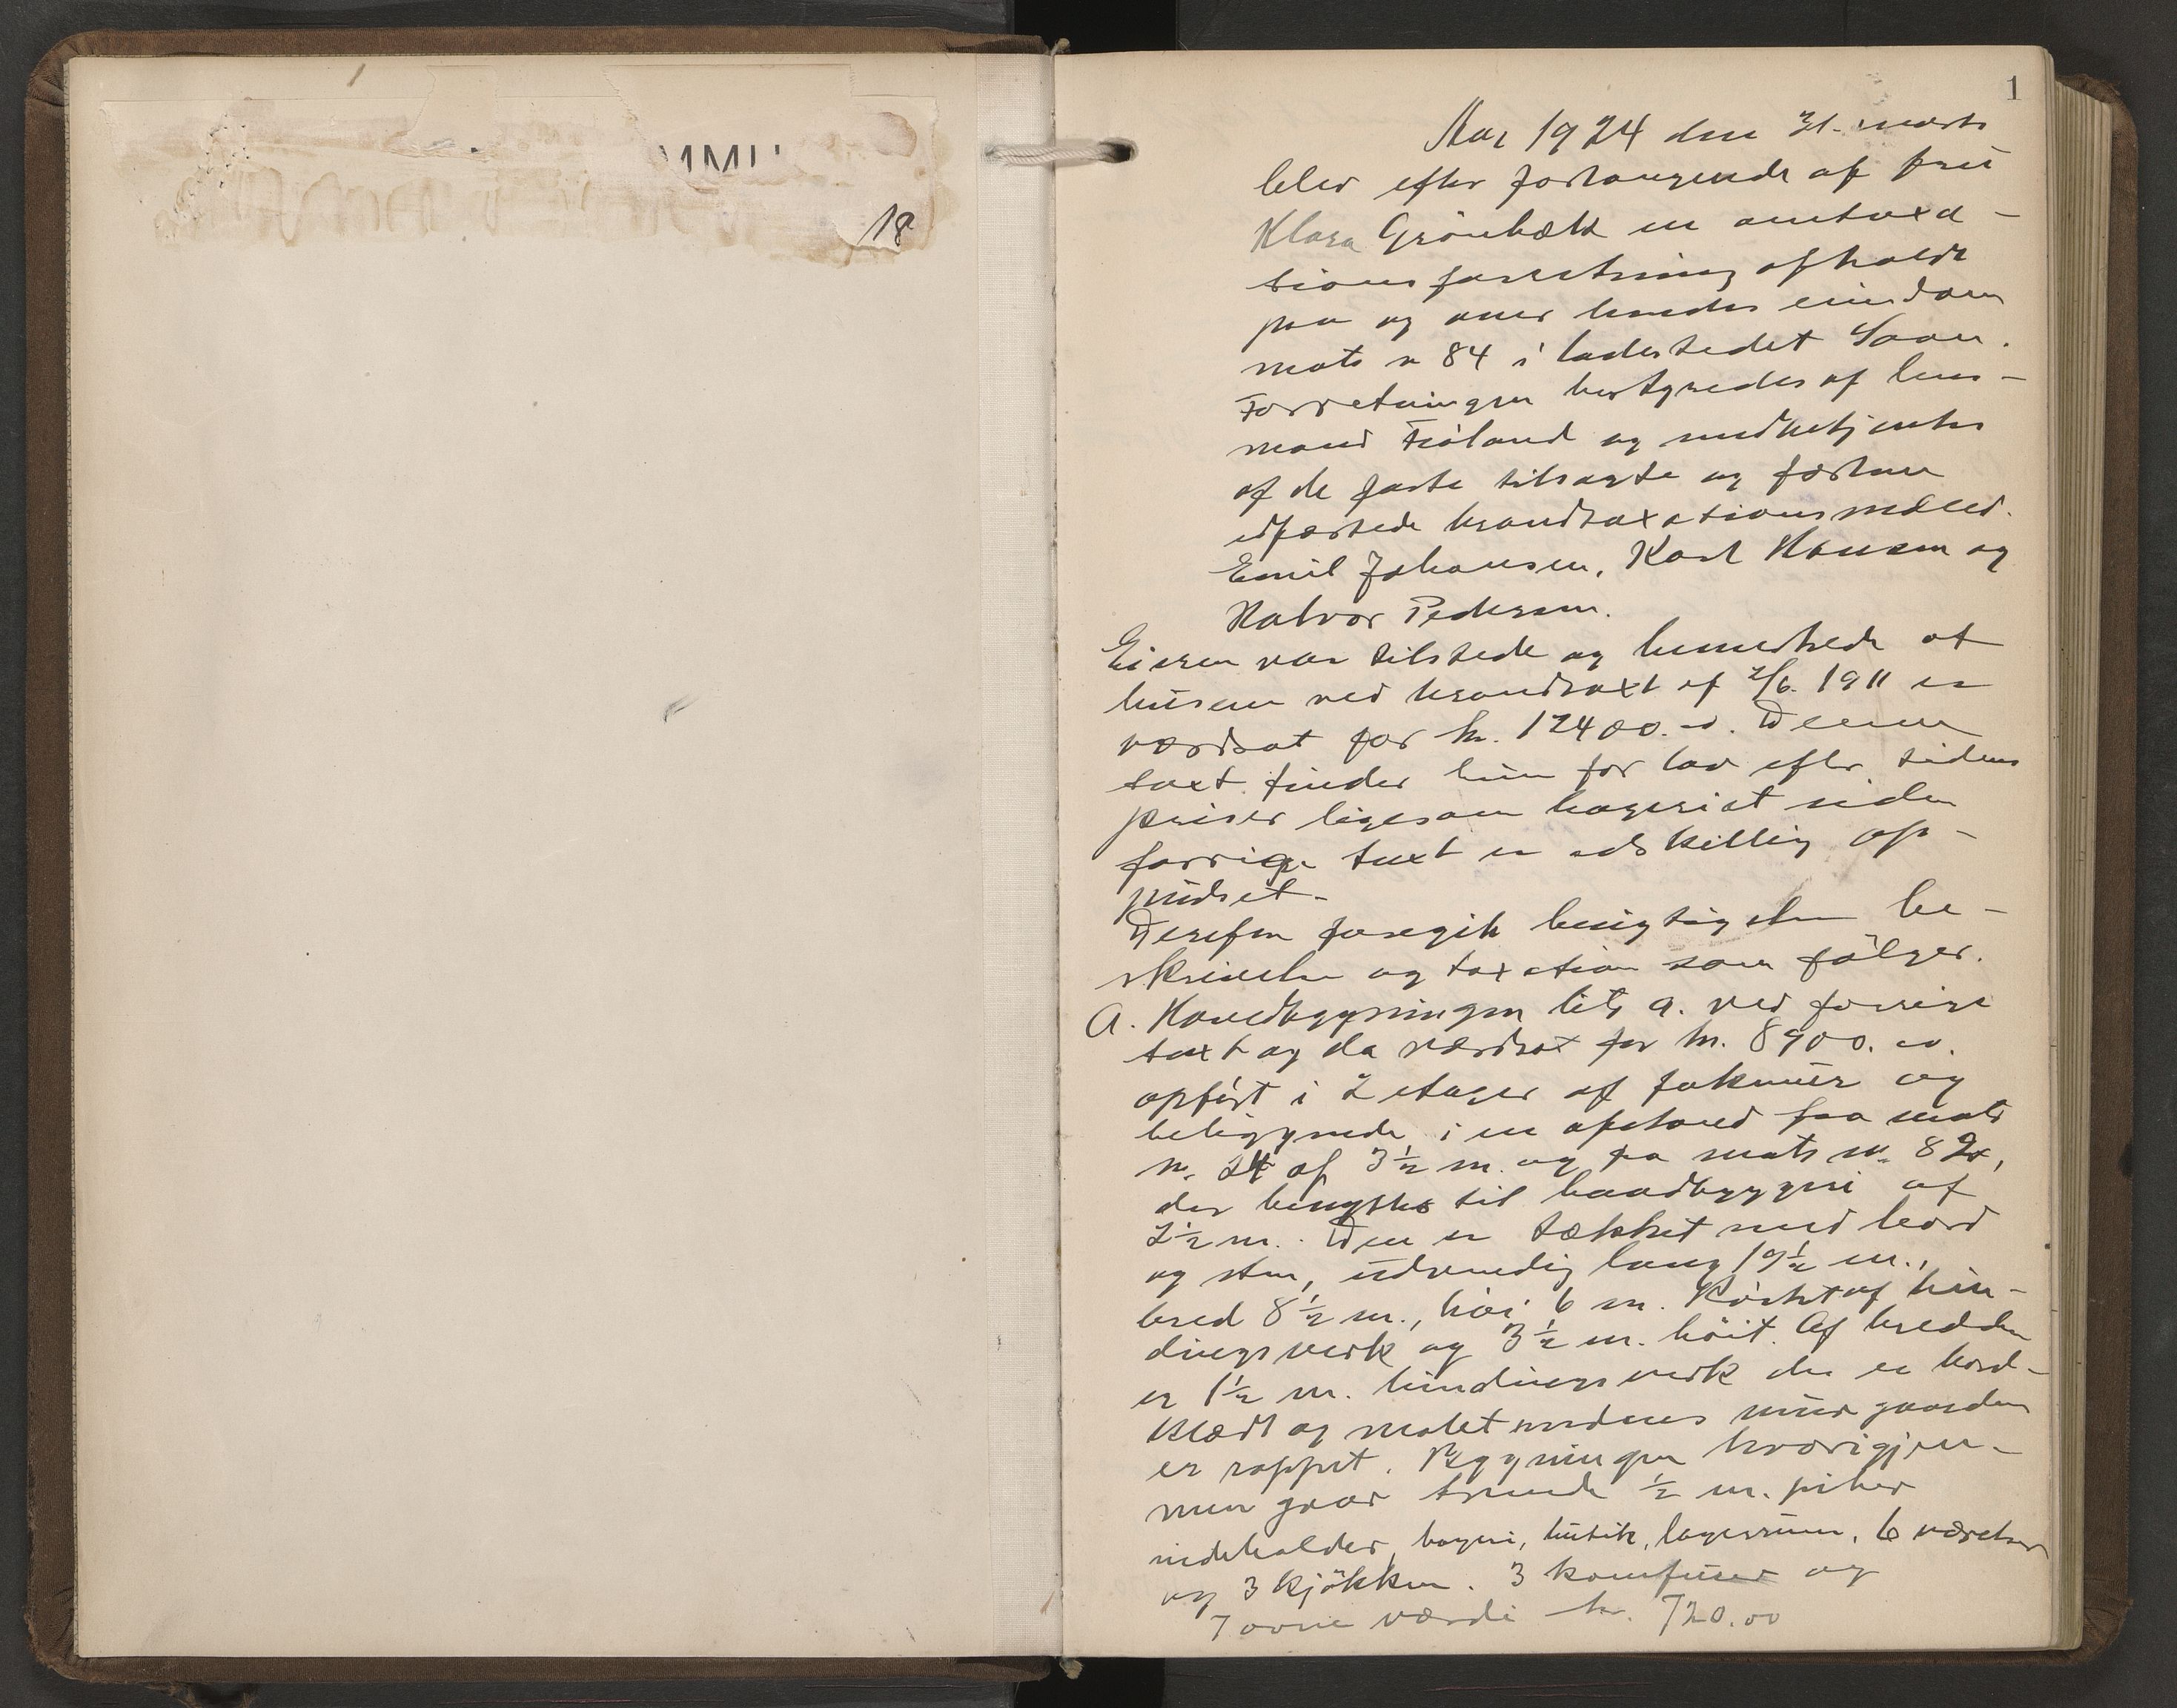 MMU
18
1
Aar 1924 den 31. marts
blev efter forlangende af frü
Klara Grönbæk en omtaxa-
tionsforretning afholdt
paa og over hendes eiendom
mats n 84 i ladestedet Soon.
Forretningen bestyredes af lens-
mand Fröland og medbetjentes
af de faste tilsagte og forhen
edfæstede brandtaxationsmænd.
Emil Johansen, Karl Hansen og
Halvor Pedersen.
Eieren var tilstede og bemerkede at
hüsene ved brandtaxt af 2/6. 1911 er
værdsat for kr. 12400.00. Denne
taxt finder hün for lav efter tidens
priser ligesom bageriet siden
forrige taxt er adskillig op-
püdset.
Derefter foregik besigtigelse be-
skrivelse og taxation som fölger.
A. Hovedbygningen litr a. ved forrige
taxt og da værdsat for kr. 8900.00.
opfört i 2 etager af fakmür og
beliggende i en afstand fra mats
n. 24 af 3½ m. og fra mats n. 82,
der benyttes til baadbyggeri af
2½ m. Den er tækket med bord
og sten, üdvendig lang 19½ m.,
bred 8½ m., höi 6 m. Röstet af bin-
dingsverk og 3½ m. höit. Af bredden
er 1½ m. bindingsverk der er bord-
klædt og malet medens mür gaarden
er rappet. Bygningen hvorigjen-
nem gaar trende ½ m. piber
indeholder, bageri, bütik, lagerrüm, 6 værelser
og 3 kjökken. 3 komfürer og
7 ovne værdi kr. 720.00